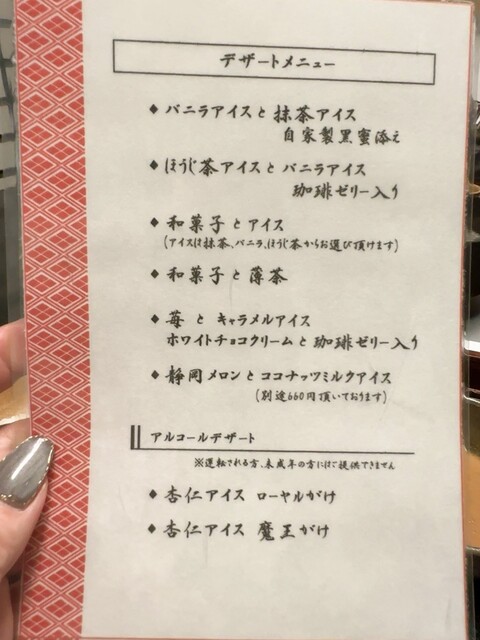 デザートメニュー
◆ バニラアイスと抹茶アイス
自家製黒蜜添え
◆ ほうじ茶アイスとバニラアイス
珈琲ゼリー入り
◆ 和菓子とアイス
(アイスは抹茶、バニラ、ほうじ茶からお選び頂けます)
◆ 和菓子と薄茶
◆ 苺とキャラメルアイス
ホワイトチョコクリームと珈琲ゼリー入り
◆ 静岡メロンとココナッツミルクアイス
(別途660円頂いております)
アルコールデザート
※運転される方、未成年の方にはご提供できません
◆ 杏仁アイス ローヤルがけ
◆ 杏仁アイス 魔王がけ